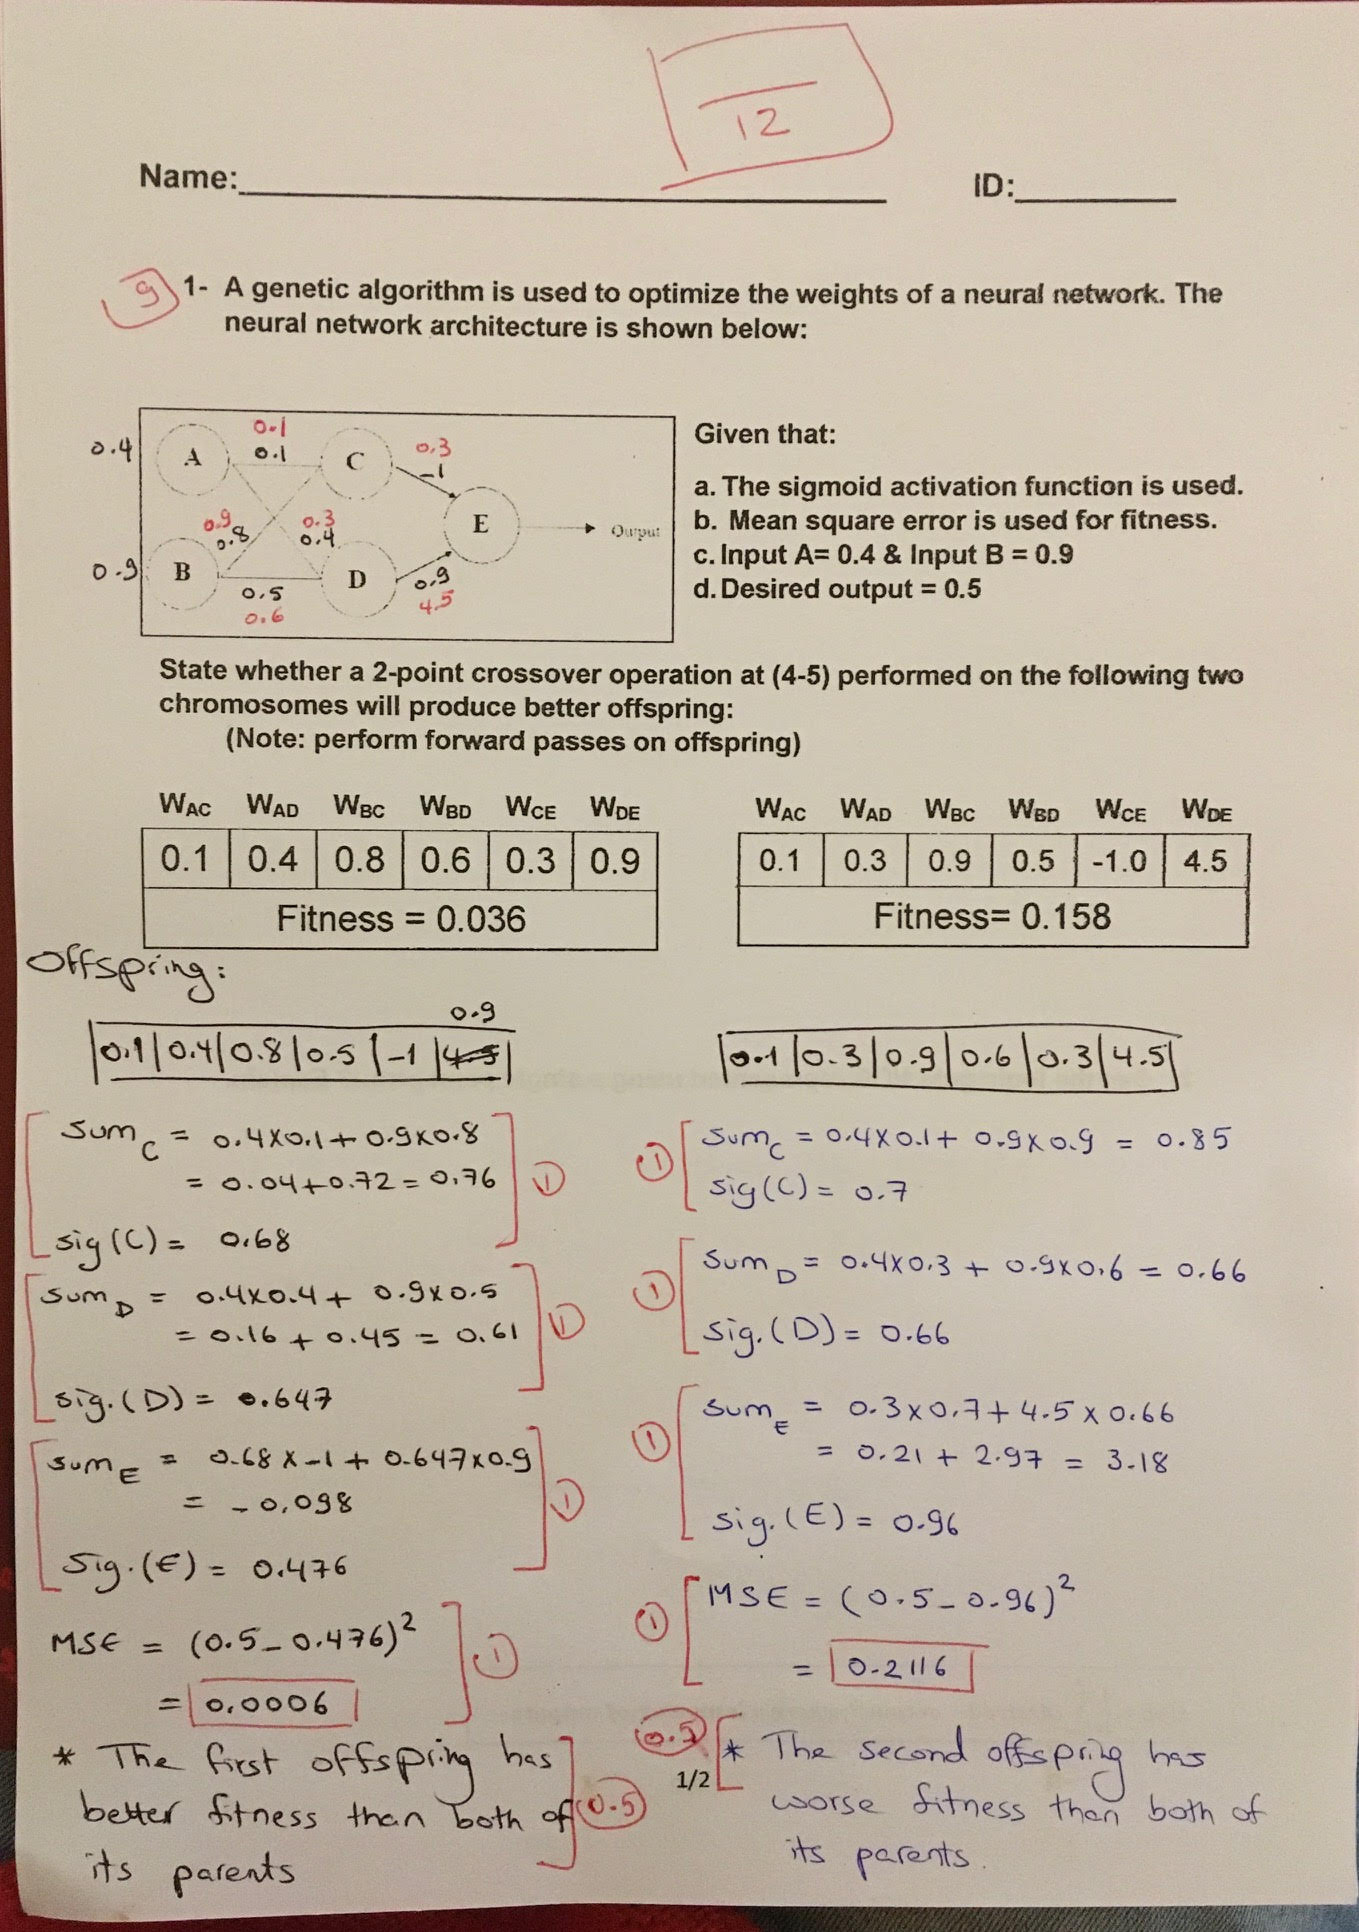 12
Name:
ID:
9
1- A genetic algorithm is used to optimize the weights of a neural network. The
neural network architecture is shown below:
0.4
A
0.1
0.1
C
0.3
-1
0.9
0.8
0.3
0.4
E
Output
0.9
B
0.5
0.6
D
0.9
4.5
Given that:
a. The sigmoid activation function is used.
b. Mean square error is used for fitness.
c. Input A= 0.4 & Input B = 0.9
d. Desired output = 0.5
State whether a 2-point crossover operation at (4-5) performed on the following two
chromosomes will produce better offspring:
(Note: perform forward passes on offspring)
WAC WAD WBC WBD WCE WDE
0.1 0.4 0.8 0.6 0.3 0.9
Fitness = 0.036
WAC WAD WBC WBD WCE WDE
0.1 0.3 0.9 0.5 -1.0 4.5
Fitness= 0.158
Offspring:
0.9
0.1 | 0.4 | 0.8 | 0.5 | -1 | 4.5
0.1 | 0.3 | 0.9 | 0.6 | 0.3 | 4.5
sumC = 0.4x0.1 + 0.9x0.8
= 0.04+0.72 = 0.76
sig (C) = 0.68
1
sumD = 0.4x0.4 + 0.9x0.5
= 0.16 + 0.45 = 0.61
sig. (D) = 0.647
1
sumE = 0.68 x -1 + 0.647x0.9
= -0.098
Sig. (E) = 0.476
1
MSE = (0.5 - 0.476)2
= 0.0006
1
* The first offspring has
better fitness than both of
its parents
0.5
1
sumC = 0.4x0.1 + 0.9x0.9 = 0.85
sig (C) = 0.7
1
sumD = 0.4x0.3 + 0.9x0.6 = 0.66
sig. (D) = 0.66
1
sumE = 0.3x0.7 + 4.5 x 0.66
= 0.21 + 2.97 = 3.18
sig. (E) = 0.96
1
MSE = (0.5 - 0.96)2
= 0.2116
0.5
* The second offspring has
worse fitness than both of
its parents.
1/2